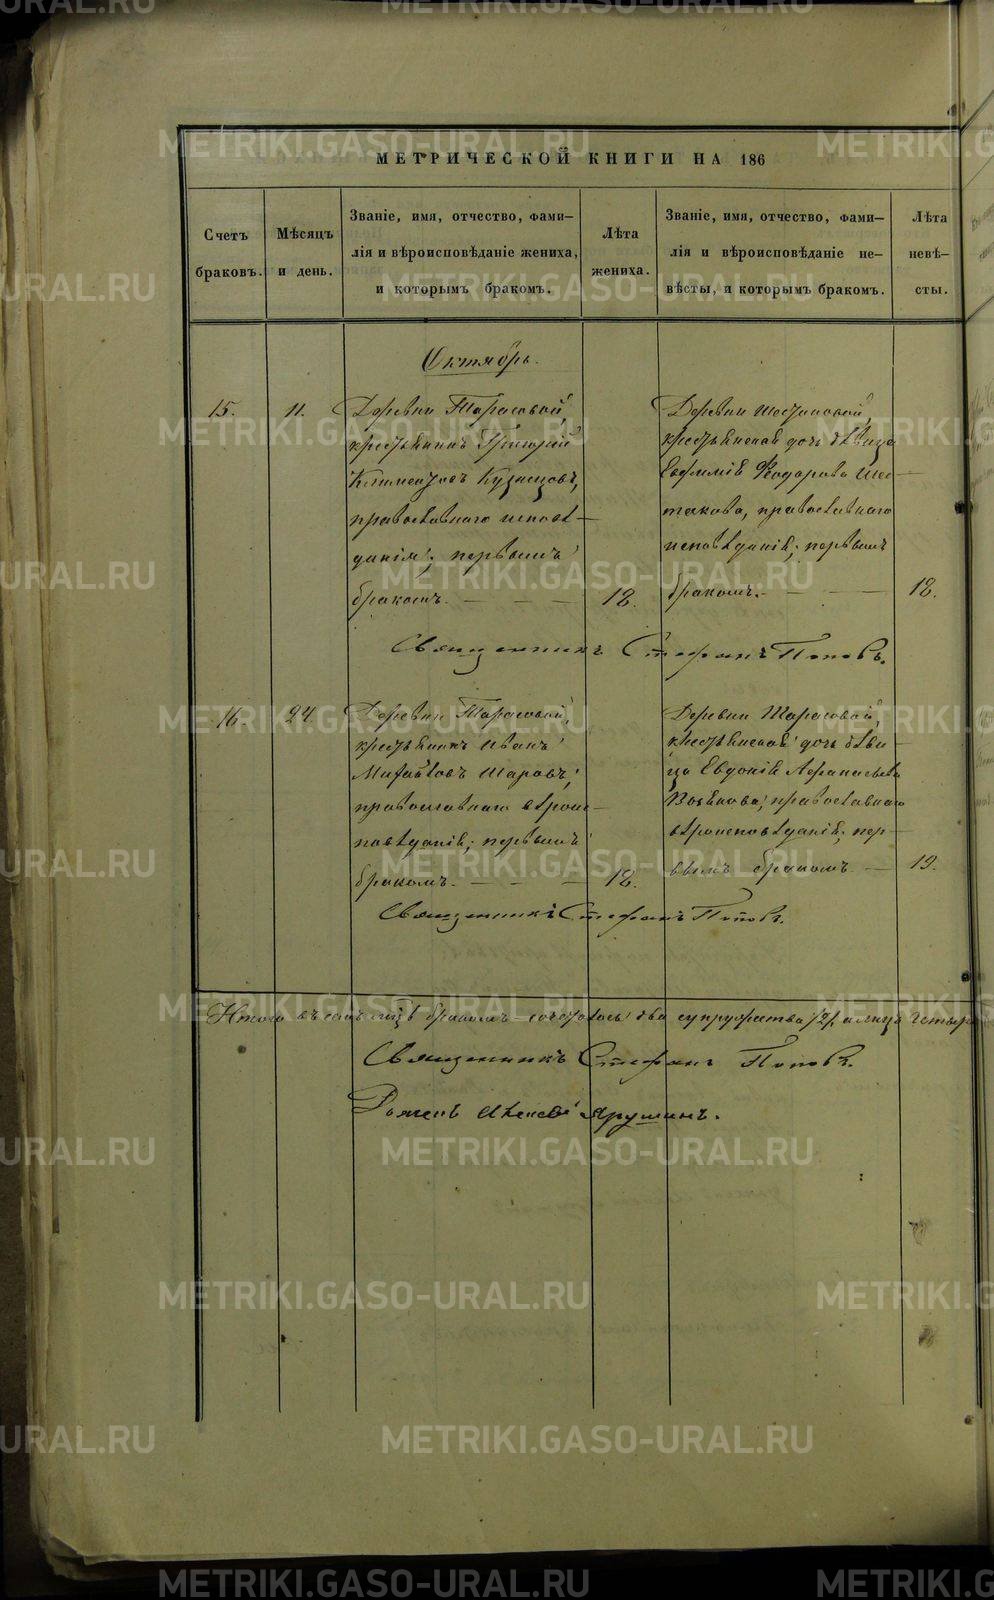 МЕТРИЧЕСКОЙ КНИГИ НА 186
Счетъ браковъ.
Мѣсяцъ и день.
Званіе, имя, отчество, фами-
лія и вѣроисповѣданіе жениха,
и которымъ бракомъ.
Лѣта жениха.
Званіе, имя, отчество, фами-
лія и вѣроисповѣданіе не-
вѣсты, и которымъ бракомъ.
Лѣта невѣ-
сты.
Октябрь.
15.
11.
Деревни Тарасовой,
крестьянинъ Григорій
Климентовъ Кузнецовъ,
православнаго исповѣ-
данія; первымъ
бракомъ.
18.
Деревни Шестаковой,
крестьянская дочь дѣвица
Евфимія Феодорова Шес-
такова, православнаго
исповѣданія; первымъ
бракомъ.
18.
Священникъ Стефанъ Поповъ.
16.
24.
Деревни Тарасовой,
крестьянинъ Иванъ
Михайловъ Шаровъ;
православнаго вѣроис-
повѣданія; первымъ
бракомъ.
18.
Деревни Тарасовой,
крестьянская дочь дѣви-
ца Евдокія Афанасьева
православнаго
вѣроисповѣданія; пер-
вымъ бракомъ
19.
Священникъ Стефанъ Поповъ.
Итого въ семъ бракомъ сочеталось два супружества /2/, а лицъ четыре
Священникъ Стефанъ Поповъ.
Ярушинъ.
METRIKI.GASO-URAL.RU